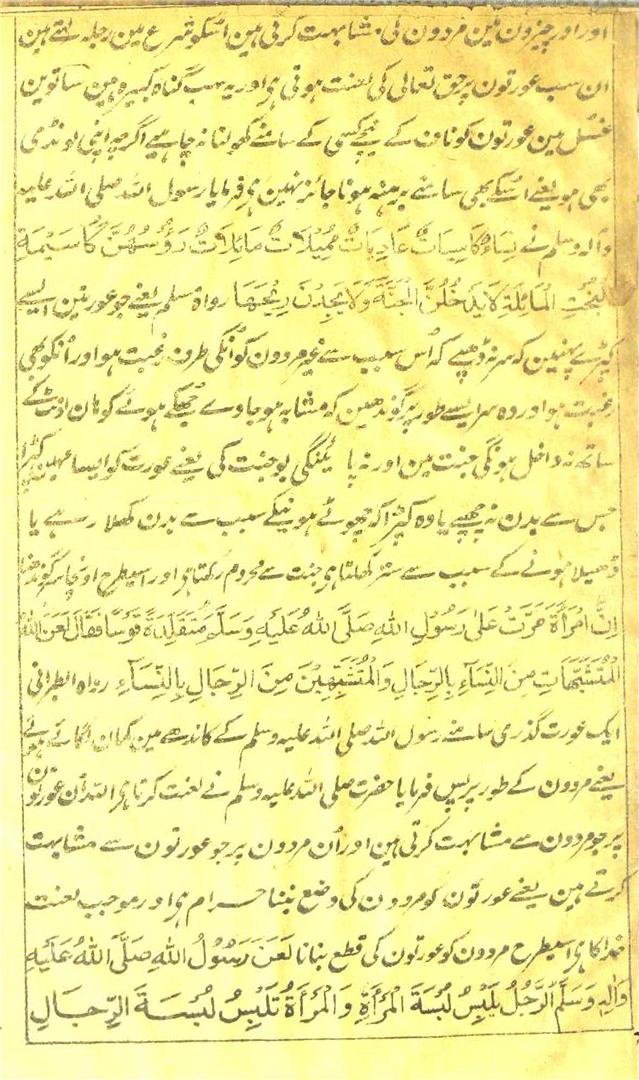 اور اور چیزون مین مردون کی مشابہت کرتی ہین اسکو شرع مین رجلہ کہتے ہین
ان سب عورتون پر حق تعالی کی لعنت ہوتی ہی اور یہ سب گناہ کبیرہ ہین ساتوین
غسل مین عورتون کو ناف کے نیچے کسی کے سامنے کھولنا نہ چاہیے اگرچہ اپنی لونڈی
بھی ہو یعنے اسکے بھی سامنے برہنہ ہونا جائز نہین ہی فرمایا رسول اللہ صلی اللہ علیہ
وآلہ وسلم نے نِسَاءٌ كَاسِيَاتٌ عَارِيَاتٌ مُمِيْلَاتٌ مَائِلَاتٌ رَؤُسُهُنَّ كَأسنِمَةِ
البُخْتِ الْمَائِلَةِ لَايَدْخُلْنَ الْجَنَّةَ وَلَايَجِدْنَ رِيْحَهَا رواہ مسلم یعنے جو عورتین ایسے
کپڑے پہنین کہ سر نہ ڈھپے کہ اُس سبب سے غیر مردون کو اُنکی طرف رغبت ہو اور اُنکو بھی
رغبت ہو اور وہ سر ایسے طور پر گوندھین کہ مشابہ ہو جاوے جھکے ہوئے کوہان اونٹ کے
ساتھ نہ داخل ہونگی جنت مین اور نہ پائینگی بو جنت کی یعنے عورت کو ایسا مہین کپڑا
جس سے بدن نہ چھپے یا وہ کپڑا کہ چھوٹے ہونیکے سبب سے بدن کھلا رہے یا
ڈھیلا ہونے کے سبب سے ستر کھلتا ہی جنت سے محروم رکھتا ہی اور اسیطرح اونچا سر گوندھنا
اِنَّ امْرَأَةً مَرَّتْ عَلٰى رَسُوْلِ اللهِ صَلَّى اللهُ عَلَيْهِ وَسَلَّمَ مُتَقَلِّدَةً قَوْسًا فَقَالَ لَعَنَ اللهُ
الْمُتَشَبِّهَاتِ مِنَ النِّسَآءِ بِالرِّجَالِ وَالْمُتَشَبِّهِيْنَ مِنَ الرِّجَالِ بِالنِّسَآءِ رواہ الطبرانی
ایک عورت گذری سامنے رسول اللہ صلی اللہ علیہ وسلم کے کاندھے مین کمان لگائے ہوئے
یعنے مردون کے طور پر پس فرمایا حضرت صلی اللہ علیہ وسلم نے لعنت کرتا ہی اللہ اُن عورتون
پر جو مردون سے مشابہت کرتی ہین اور اُن مردون پر جو عورتون سے مشابہت
کرتے ہین یعنے عورتون کو مردون کی وضع بننا حرام ہی اور موجب لعنت
خدا کا ہی اسیطرح مردون کو عورتون کی قطع بنانا لَعَنَ رَسُوْلُ اللهِ صَلَّى اللهُ عَلَيْهِ
وَاٰلِهٖ وَسَلَّمَ الرَّجُلُ يَلْبِسُ لُبْسَةَ الْمَرْأَةِ وَالْمَرْأَةُ تَلْبِسُ لُبْسَةَ الرِّجَالِ